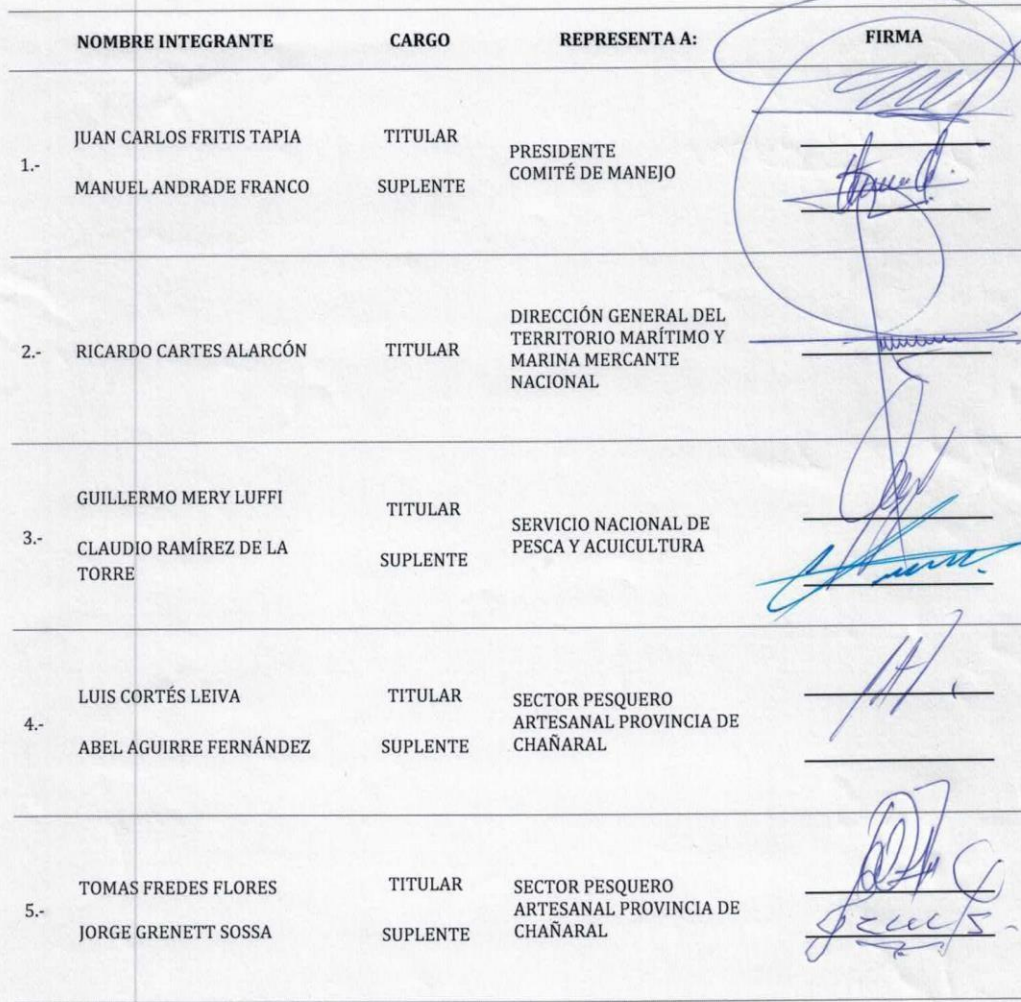 NOMBRE INTEGRANTE CARGO REPRESENTA A: FIRMA
1.-
JUAN CARLOS FRITIS TAPIA TITULAR
MANUEL ANDRADE FRANCO SUPLENTE
PRESIDENTE
COMITÉ DE MANEJO
2.- RICARDO CARTES ALARCÓN TITULAR
DIRECCIÓN GENERAL DEL
TERRITORIO MARÍTIMO Y
MARINA MERCANTE
NACIONAL
3.-
GUILLERMO MERY LUFFI TITULAR
CLAUDIO RAMÍREZ DE LA
TORRE
SUPLENTE
SERVICIO NACIONAL DE
PESCA Y ACUICULTURA
4.-
LUIS CORTÉS LEIVA TITULAR
ABEL AGUIRRE FERNÁNDEZ SUPLENTE
SECTOR PESQUERO
ARTESANAL PROVINCIA DE
CHAÑARAL
5.-
TOMAS FREDES FLORES TITULAR
JORGE GRENETT SOSSA SUPLENTE
SECTOR PESQUERO
ARTESANAL PROVINCIA DE
CHAÑARAL